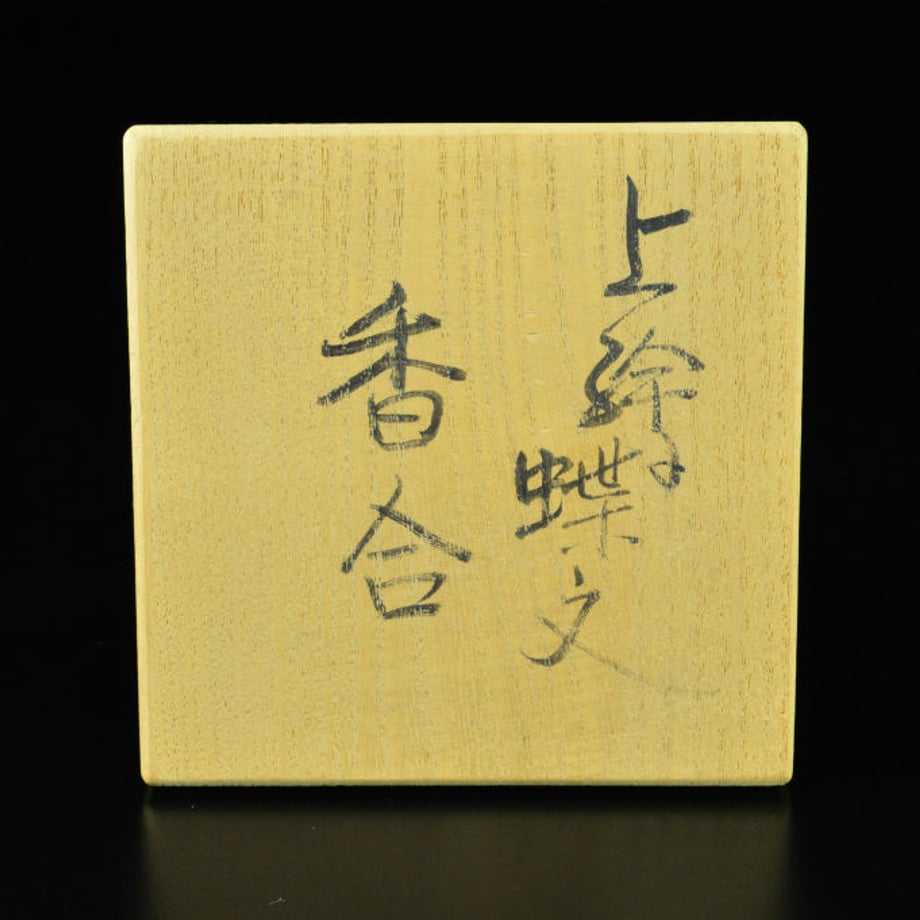 上絵蝶文
香合